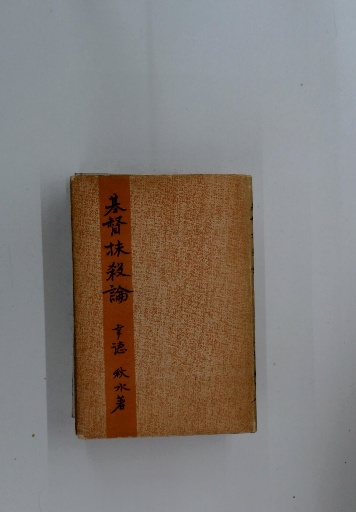 基督抹殺論
幸德秋水著